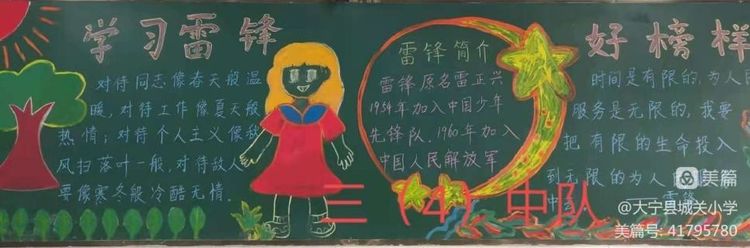 学习雷锋
好榜样
对待同志像春天般温
暖，对待工作像夏天般
热情；对待个人主义像秋
风扫落叶一般，对待敌人
要像寒冬般冷酷无情。
雷锋简介
雷锋原名雷正兴
1954年加入中国少年
先锋队，1960年加入
中国人民解放军
时间是有限的，为人
服务是无限的，我要
把有限的生命投入
到无限的为人
中去
雷锋
三（4）中队
美篇
@大宁县城关小学
美篇号：41795780